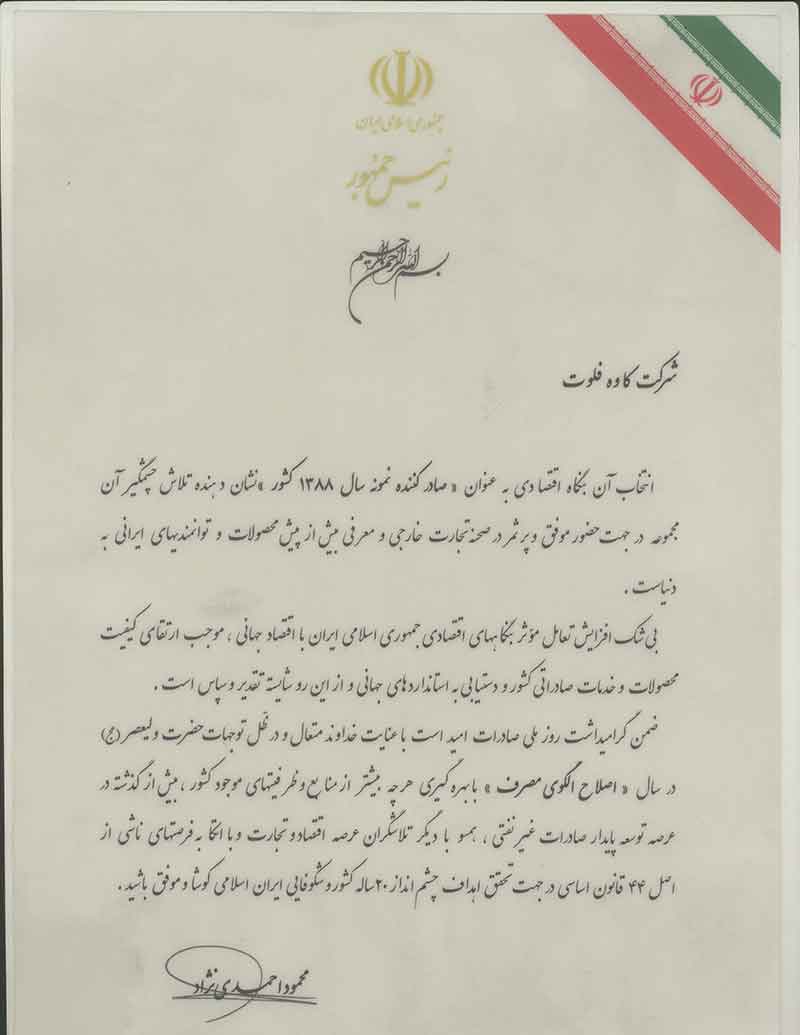 جمهوری اسلامی ایران
رئیس جمهور
بسم الله الرحمن الرحیم
شرکت کاوه فلوت
انتخاب آن بنگاه اقتصادی به عنوان « صادر کننده نمونه سال ۱۳۸۸ کشور » نشان دهنده تلاش چشمگیر آن
مجموعه در جهت حضور موفق و پر ثمر در صحنه تجارت خارجی و معرفی بیش از پیش محصولات و توانمندیهای ایرانی به
دنیاست .
بی شک افزایش تعامل مؤثر بنگاههای اقتصادی جمهوری اسلامی ایران با اقتصاد جهانی ، موجب ارتقای کیفیت
محصولات و خدمات صادراتی کشور و دستیابی به استانداردهای جهانی و از این رو شایسته تقدیر و سپاس است .
ضمن گرامیداشت روز ملی صادرات امید است با عنایت خداوند متعال و در ظل توجهات حضرت ولیعصر (عج)
در سال « اصلاح الگوی مصرف » با بهره گیری هر چه بیشتر از منابع و ظرفیتهای موجود کشور ، بیش از گذشته در
عرصه توسعه پایدار صادرات غیر نفتی ، همسو با دیگر تلاشگران عرصه اقتصاد و تجارت و با اتکا به فرصتهای ناشی از
اصل ۴۴ قانون اساسی در جهت تحقق اهداف چشم انداز ۲۰ ساله کشور و شکوفایی ایران اسلامی کوشا و موفق باشید .
محمود احمدی نژاد